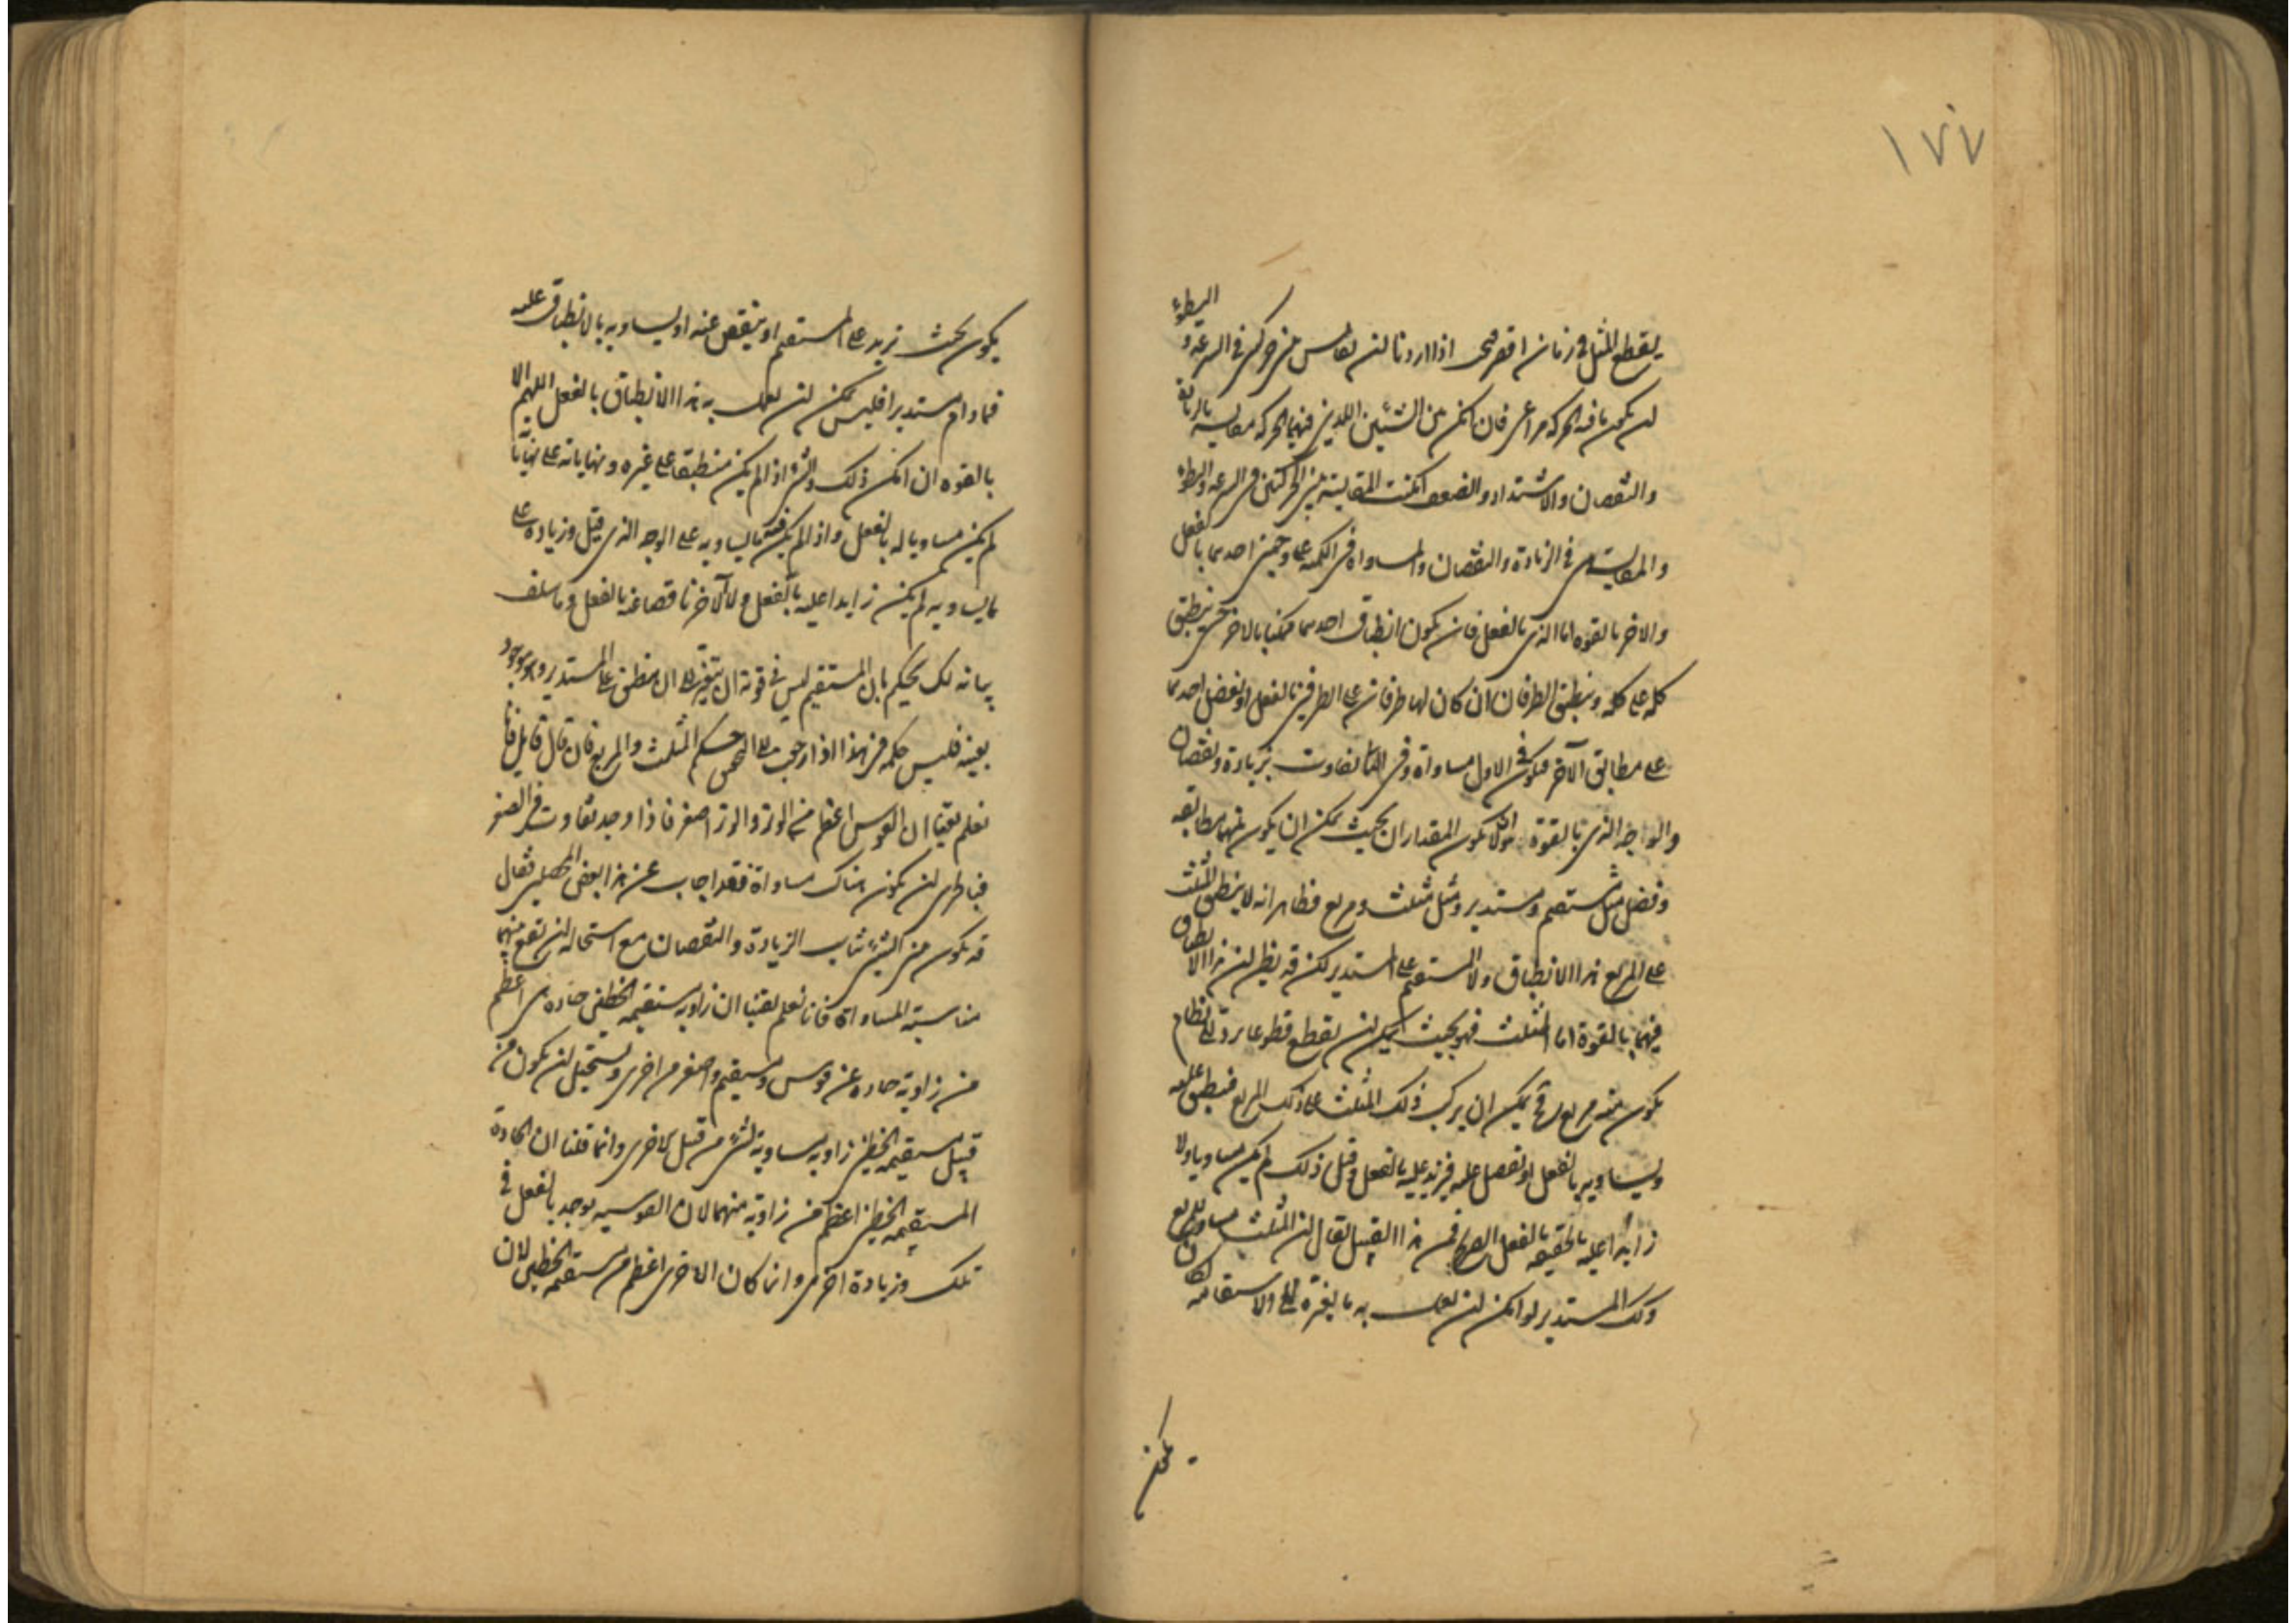 ١٧٧
يقطع المثل في زمان اقصر فنحن اذا اردنا ان نقايس بين حركتين في السرعة و البطوء
ان يكون ما فيه الحركة مراعى فان امكن بين الشيئين اللذين فيهما الحركة مقايسة بالزيادة
والنقصان والاشتداد والضعف امكنت المقايسة بين الحركتين في السرعة والبطوء
والمقايسة في الزيادة والنقصان والمساواة في الكمية على وجهين احدهما بالفعل
والاخر بالقوه اما الذي بالفعل فان يكون انطباق احدهما ممكنا بالاخر حتى ينطبق
كله على كله وينطبق الطرفان ان كان لهما طرفان على الطرفين بالفعل او يفضل احدهما
على مطابق الآخر فيكون في الاول مساواة وفي الثاني تفاوت بزيادة ونقصان
والوجه الذي بالقوة هو ان لا يكون المقداران بحيث يمكن ان يكون بينهما مطابقه
وفضل مثل مستقيم ومستدير ومثل مثلث ومربع فظاهر انه لا ينطبق المثلث
على المربع هذا الانطباق ولا المستقيم على المستدير لكن قد يظن ان هذا الانطباق
فيهما بالقوة اما المثلث فهو بحيث يمكن ان يقطع قطوعا يرد الى نظام
يكون منه مربع وح يمكن ان يركب ذلك المثلث على ذلك المربع فينطبق عليه
ويساويه بالفعل او يفضل عليه فيزيد عليه بالفعل وقبل ذلك لم يكن مساويا ولا
زايدا عليه بالحقيقه بالفعل الصريح فمن هذا القبيل يقال ان المثلث مساو للمربع
وكك المستدير لو امكن ان يعمل به ما يغيره الى الاستقامه لكان
يمكن
يكون بحيث يزيد على المستقيم او ينقص عنه او يساويه بالانطباق عليه
فما دام مستديرا فليس يمكن ان يعمل به هذا الانطباق بالفعل اللهم الا
بالقوه ان امكن ذلك والشئ اذا لم يكن منطبقا على غيره ونهاياته على نهاياته
لم يكن مساويا له بالفعل واذا لم يكن فيه ما يساويه على الوجه الذي قيل وزيادة على
ما يساويه لم يكن زايدا عليه بالفعل ولا الآخر ناقصا عنه بالفعل وما سلف
بيانه لك يحكم بان المستقيم ليس في قوته ان يتغير الى ان ينطبق على المستدير وهو موجود
بعينه فليس حكمه في هذا اذا رجعت الى حكم المثلث والمربع فان قال قايل فانا
نعلم يقينا ان القوس اعظم من الوتر والوتر اصغر فاذا وجد تفاوت في الصغر
فبالحرى ان يكون هناك مساواة فقد اجاب عن هذا بعض المحصلين فقال
قد يكون بين الشيئين الزيادة والنقصان مع استحاله ان تقع بينهما
مناسبة المساواة فانا نعلم يقينا ان زاويه مستقيمه الخطين حاده هى اعظم
من زاوية حاده عن قوس ومستقيم واصغر من اخرى ويستحيل ان يكون من
قبيل مستقيمه الخطين زاويه مساوية لشئ من قبيل الاخرى وانما قلنا ان الحادة
المستقيمه الخطين اعظم من زاوية منهما لان القوسيه يوجد بالفعل في
تلك وزيادة اخرى وانما كان الاخرى اعظم من مستقيمه الخطين لان